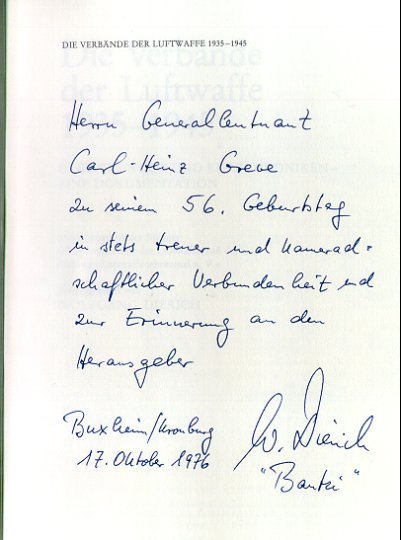 DIE VERBÄNDE DER LUFTWAFFE 1935–1945
Herrn Generalleutnant
Carl-Heinz Greve
zu seinem 56. Geburtstag
in stets treuer und kamerad-
schaftlicher Verbundenheit und
zur Erinnerung an den
Herausgeber
Buxheim/Kronburg
17. Oktober 1976
W. Dierich